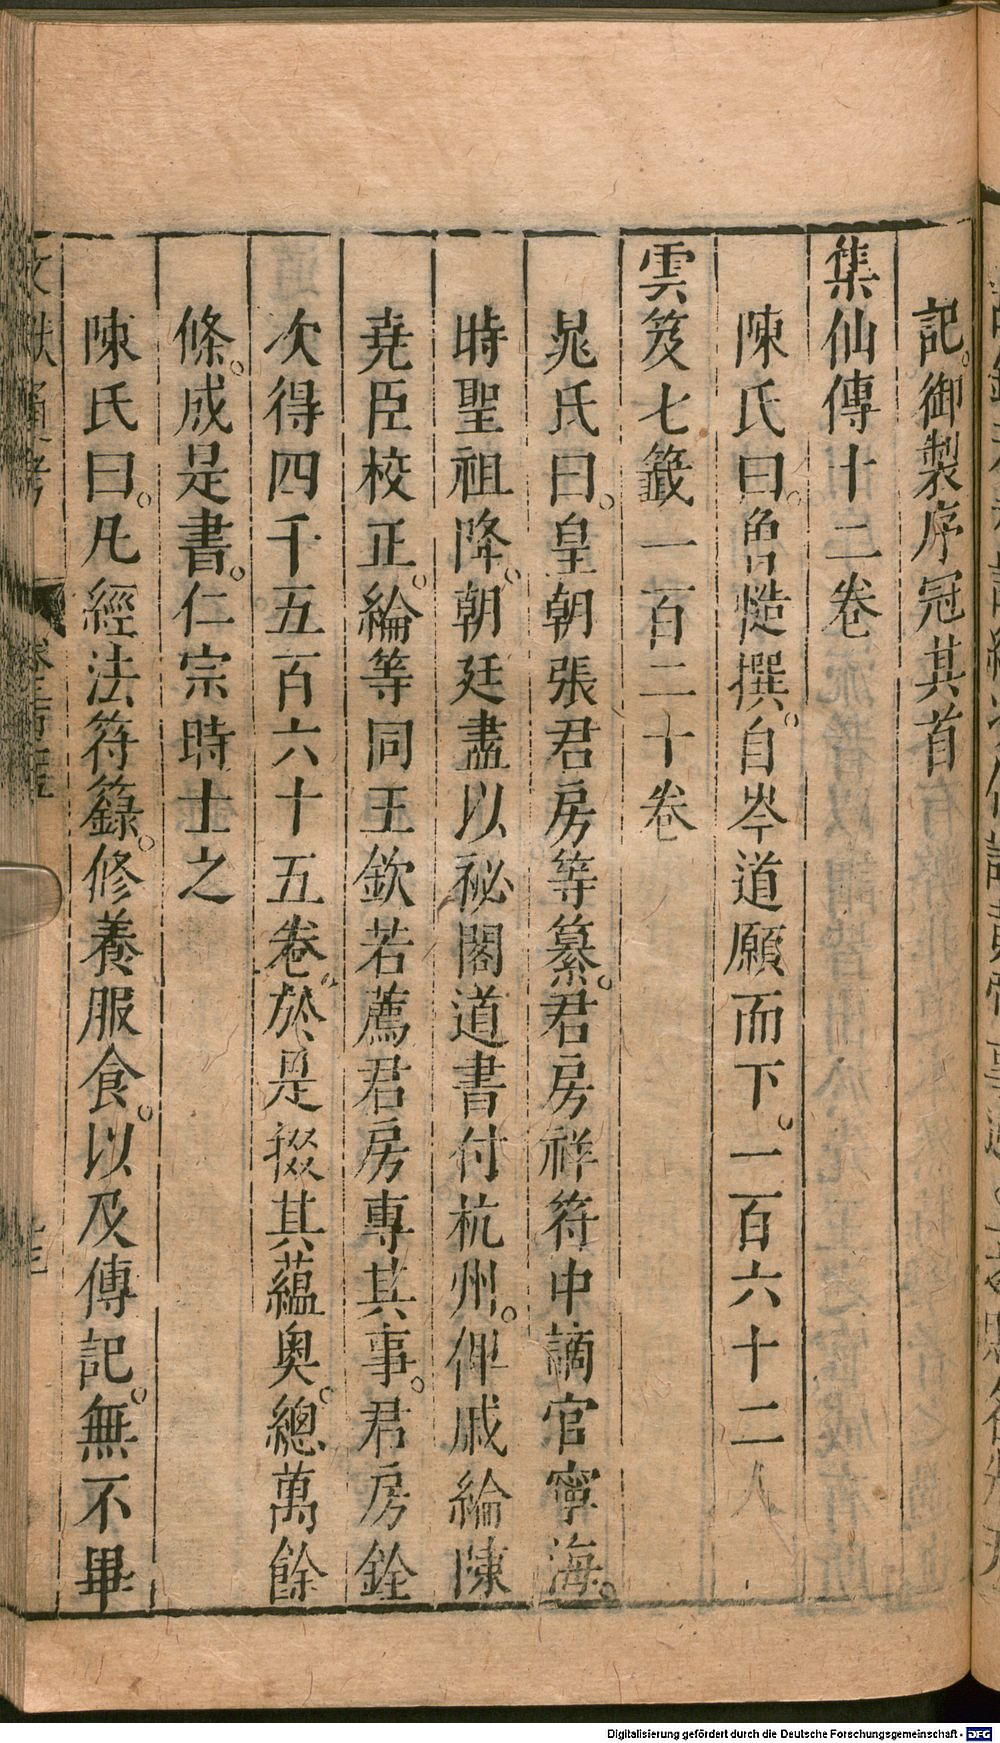 記。御製序冠其首
集仙傳十二卷
陳氏曰。曾慥撰。自岑道願而下。一百六十二人
雲笈七籤一百二十卷
晁氏曰。皇朝張君房等纂。君房祥符中謫官寧海。
時聖祖降。朝廷盡以祕閣道書付杭州。俾戚綸陳
堯臣校正。綸等同王欽若薦君房專其事。君房銓
次得四千五百六十五卷。於是掇其蘊奥。總萬餘
條。成是書。仁宗時士之
陳氏曰。凡經法符籙。修養服食。以及傳記。無不畢
Digitalisierung gefördert durch die Deutsche Forschungsgemeinschaft - DFG